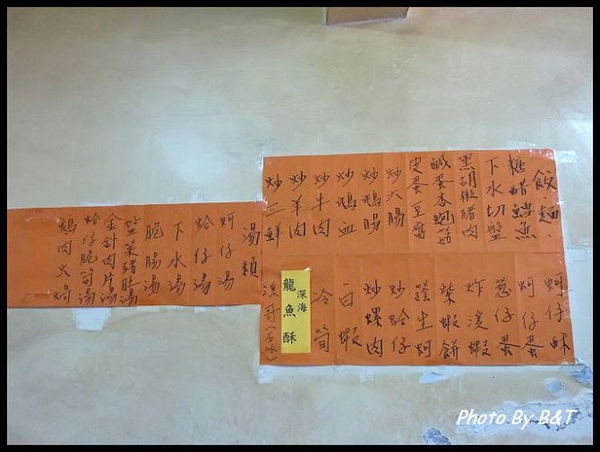 飯. 麵.
糖醋鱈魚
下水切盤
黑胡椒豬肉
鹹蛋杏鮑菇
皮蛋豆腐
炒大腸
炒鵝腸
炒鵝血
炒牛肉
炒羊肉
炒三鮮
蚵仔酥
蚵仔蛋
蔥仔蛋
炸溪蝦
柴蝦餅
蔭生蚵
炒蛤仔
炒螺肉
白蝦
冷筍
深海
龍魚酥
溪哥
湯類
蚵仔湯
蛤仔湯
下水湯
脆腸湯
豬腸湯
金針肉片湯
蛤仔脆筍湯
鵝肉火鍋
Photo By B&T